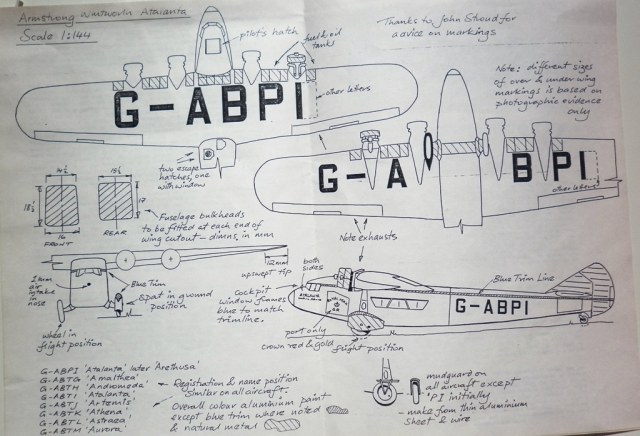 Armstrong Whitworth Atalanta
Scale 1:144
pilot's hatch
fuel & oil
tanks
Thanks to John Stroud for
advice on markings
Note: different sizes
of over & under wing
markings is based on
photographic evidence
only
G-ABPI
other letters
two escape
hatches, one
with window
G-A BPI
other letters
14½
15½
18½
17
16
FRONT
REAR
Fuselage bulkheads
to be fitted at each end of
wing cutout - dimns, in mm
Note exhausts
12mm
upswept tip
both
sides
Blue Trim
air
intake
in nose
Spat in ground
position
Cockpit
window frames
blue to match
trimline.
Blue Trim Line
G-ABPI
wheel in
flight position
port only
crown red & gold
flight position
G-ABPI 'Atalanta' later 'Arethusa'
G-ABTG 'Amalthea'
G-ABTH 'Andromeda'
G-ABTI 'Atalanta'
G-ABTJ 'Artemis'
G-ABTK 'Athena'
G-ABTL 'Astraea'
G-ABTM 'Aurora'
Registration & name position
Similar on all aircraft.
Overall colour aluminium paint
except blue trim where noted
& natural metal
mudguard on
all aircraft except
'PI initially
- make from thin aluminium
sheet & wire